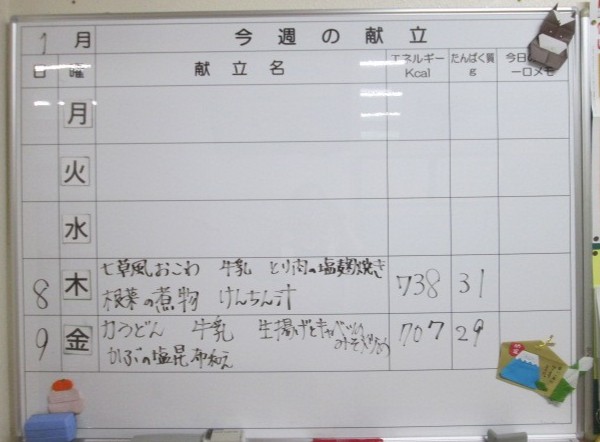 1 月 今週の献立
日 曜 献立名 エネルギー Kcal たんぱく質 g 今日の 一口メモ
月
火
水
8 木 七草風おこわ 牛乳 とり肉の塩麹焼き 738 31
根菜の煮物 けんちん汁
9 金 力うどん 牛乳 生揚げとキャベツの 707 29
みそ炒め
かぶの塩昆布和え